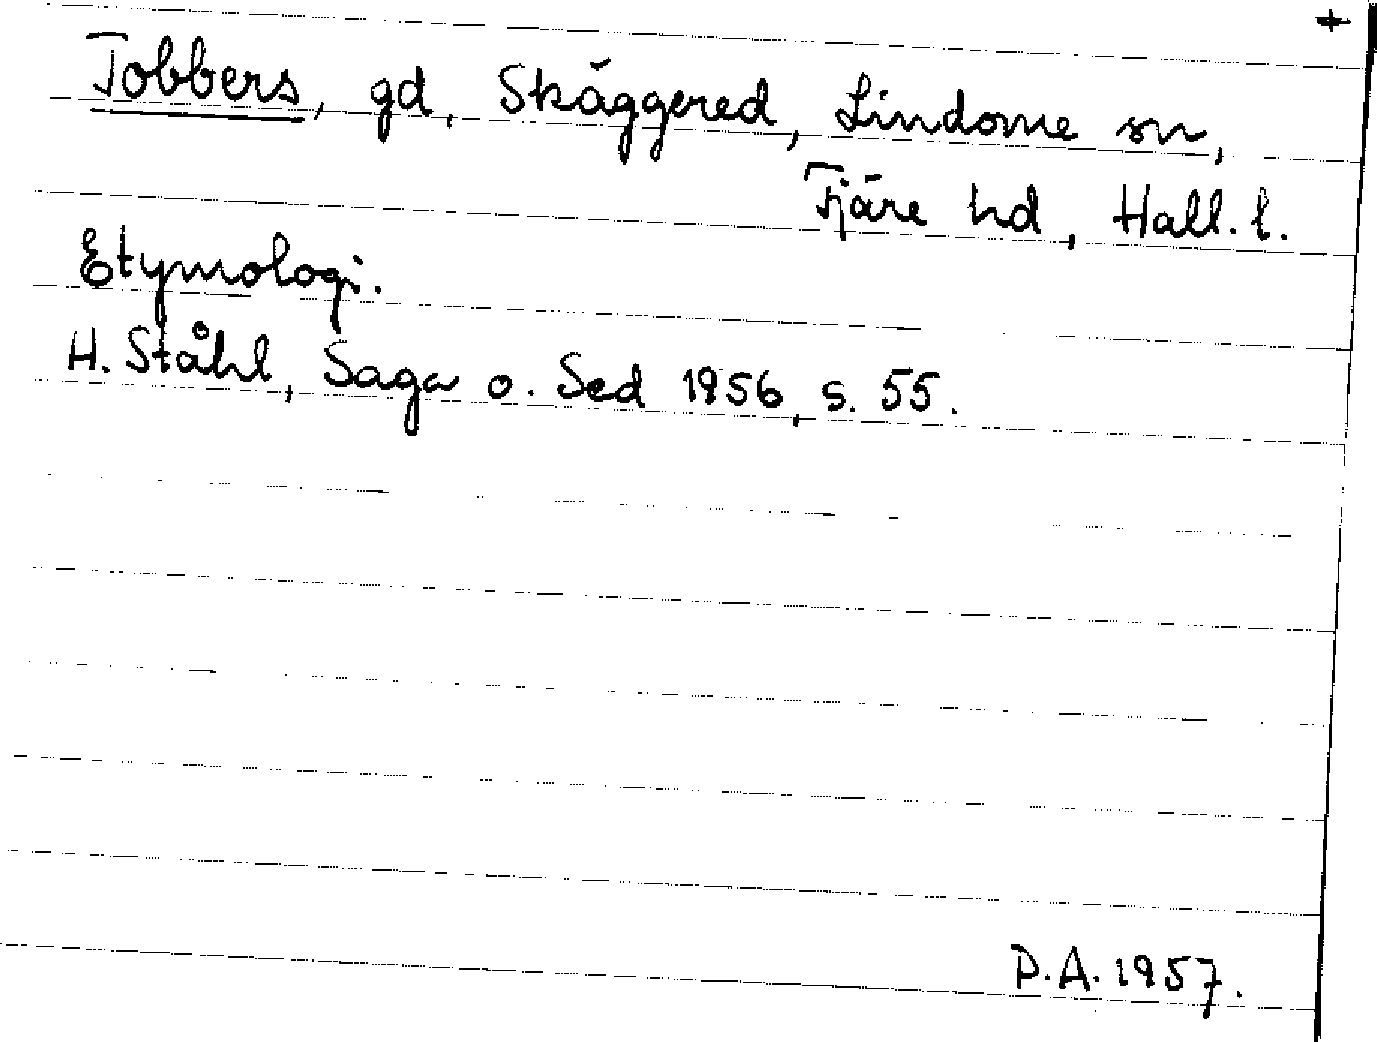 +
Tobbers, gd, Skäggered, Lindome sn,
Fjäre hd, Hall. l.
Etymologi.
H. Ståhl, Saga o. Sed 1956, s. 55.
P.A. 1957.